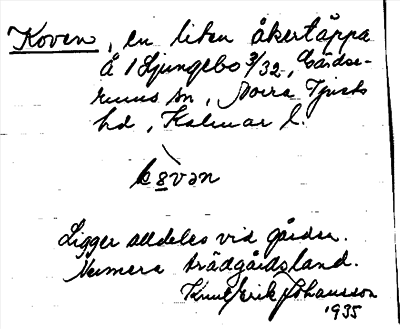 Koven, en liten åkertäppa
Å 1 Ljungebo 3/32, Gärdse-
rums sn, Norra Tjusts
hd, Kalmar l.
kovan
Ligger alldeles vid gården.
Numera trädgårdsland.
Knut Erik Johansson
1935